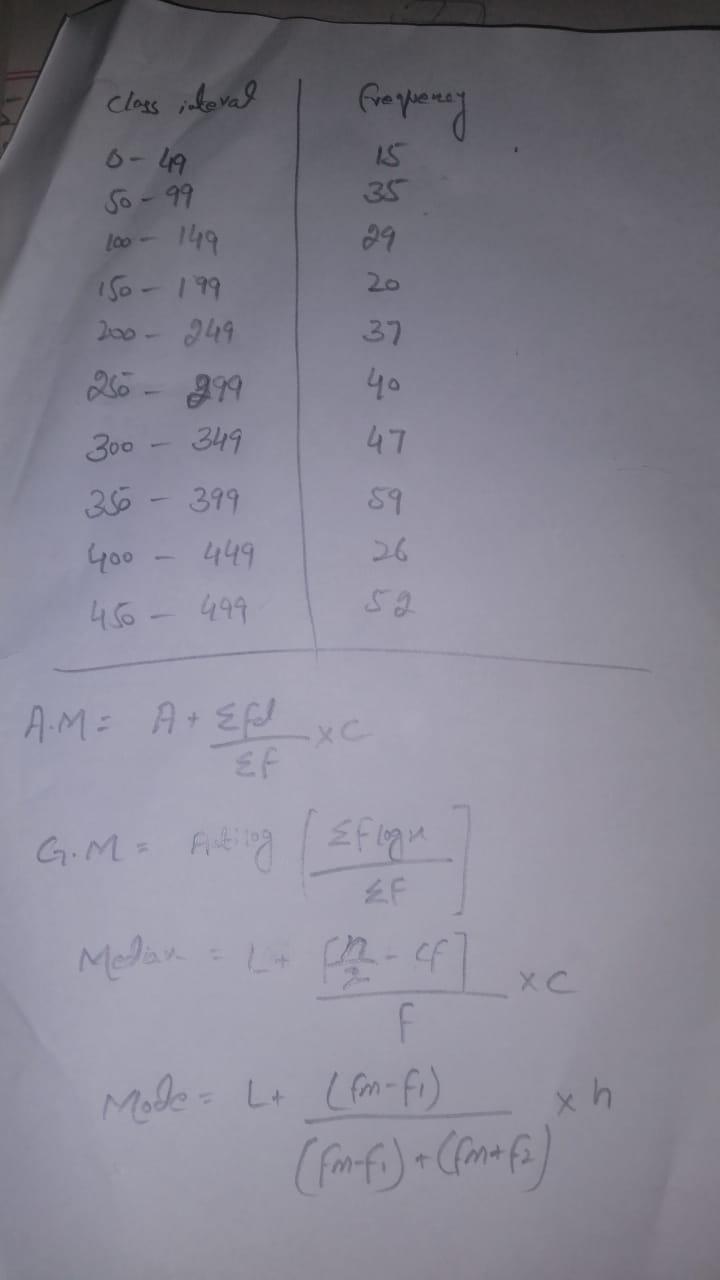 Class interval frequency
0 - 49 15
50 - 99 35
100 - 149 29
150 - 199 20
200 - 249 37
250 - 299 40
300 - 349 47
350 - 399 59
400 - 449 26
450 - 499 52
A.M = A + Σfd / ΣF × C
G.M = Antilog [ ΣF log x / ΣF ]
Median = L + [n/2 - cf] / F × C
Mode = L + (fm - f1) / (fm - f1) + (fm + f2) × h